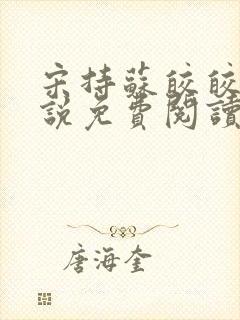 宋持蘇皎皎
說免費閱讀
唐海奎